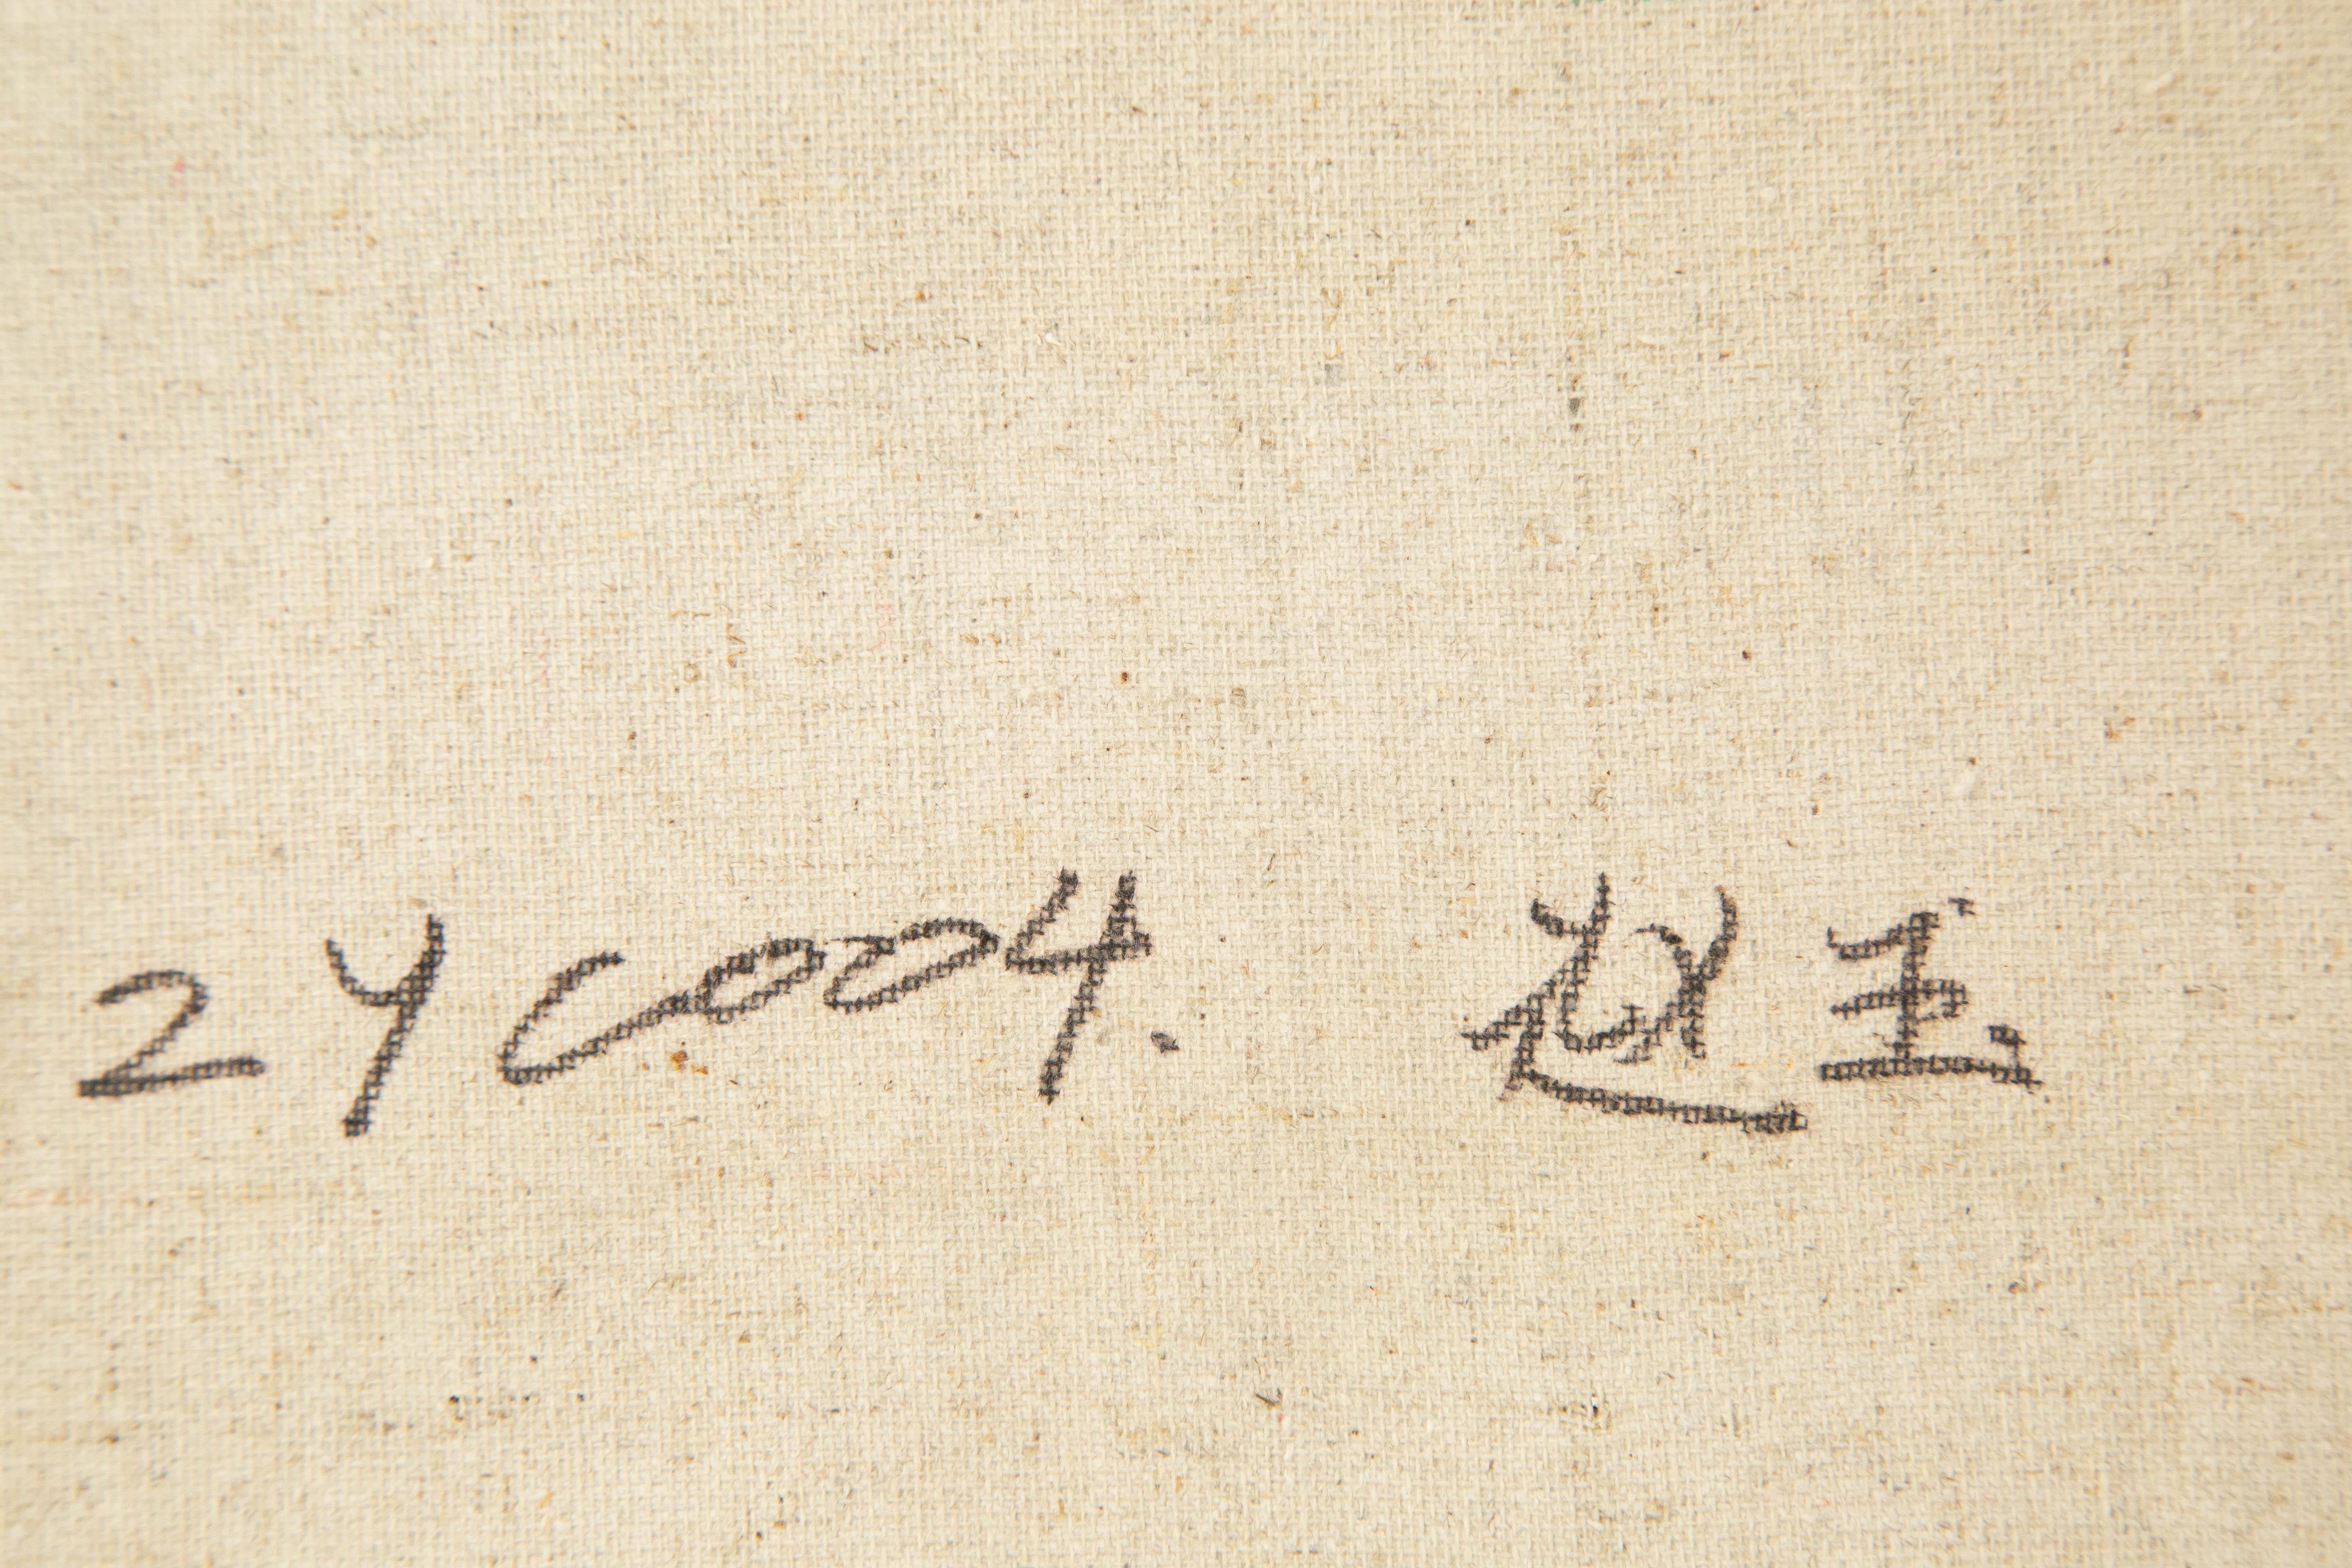 ZYC004. 赵玉